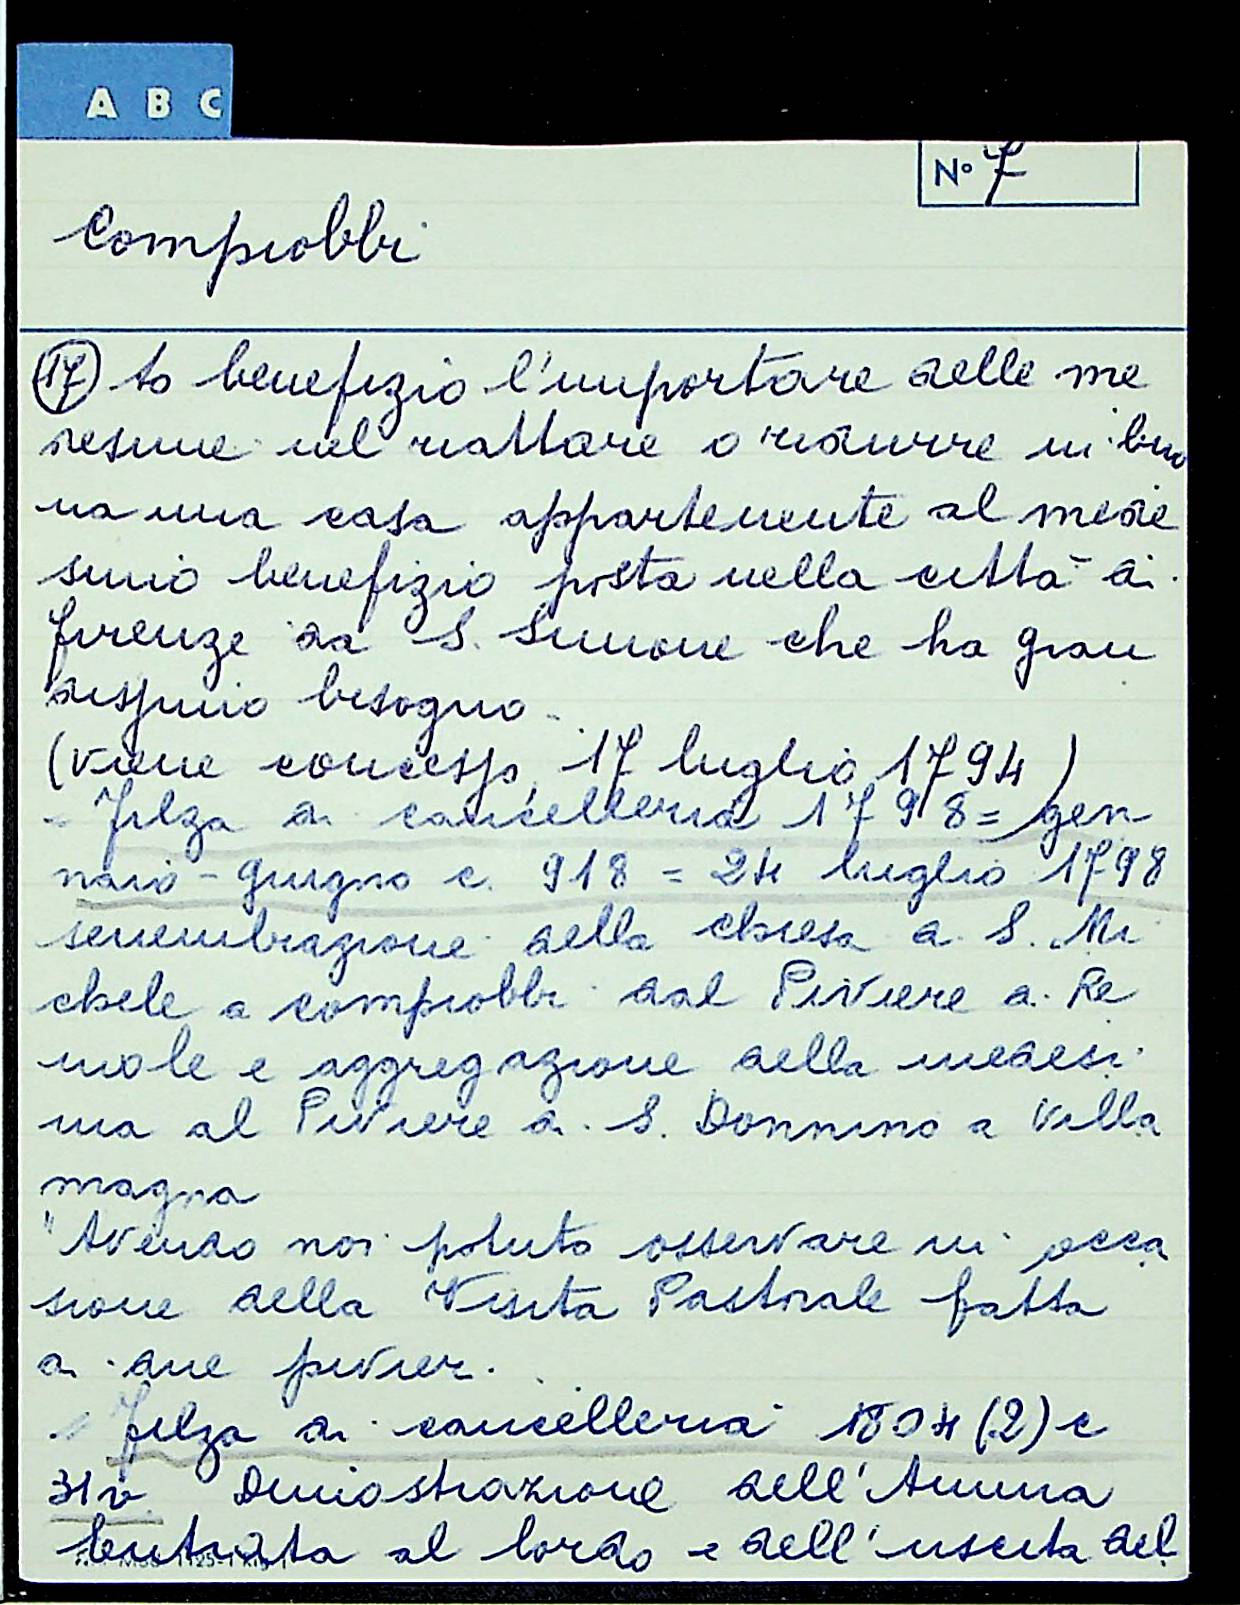 A B C
N° 7
Compiobbi
(17) to benefizio l'importare delle me
desime nel riattare o ridurre in buo
na una casa appartenente al mede
simo benefizio posta nella città di
Firenze da S. Simone che ha gran
dissimo bisogno
(viene concesso, 17 luglio 1794)
- Filza di cancelleria 1798 = gen
naio - giugno c. 918 = 24 luglio 1798
smembrazione della chiesa di S. Mi
chele a Compiobbi dal Piviere di Re
mole e aggregazione della medesi
ma al Piviere di S. Donnino a Villa
magna
"Avendo noi potuto osservare in occa
sione della Visita Pastorale fatta
ai due pivieri.
- Filza di cancelleria 1804 (2) c
31v Dimostrazione dell'Annua
Entrata al lordo e dell'uscita del